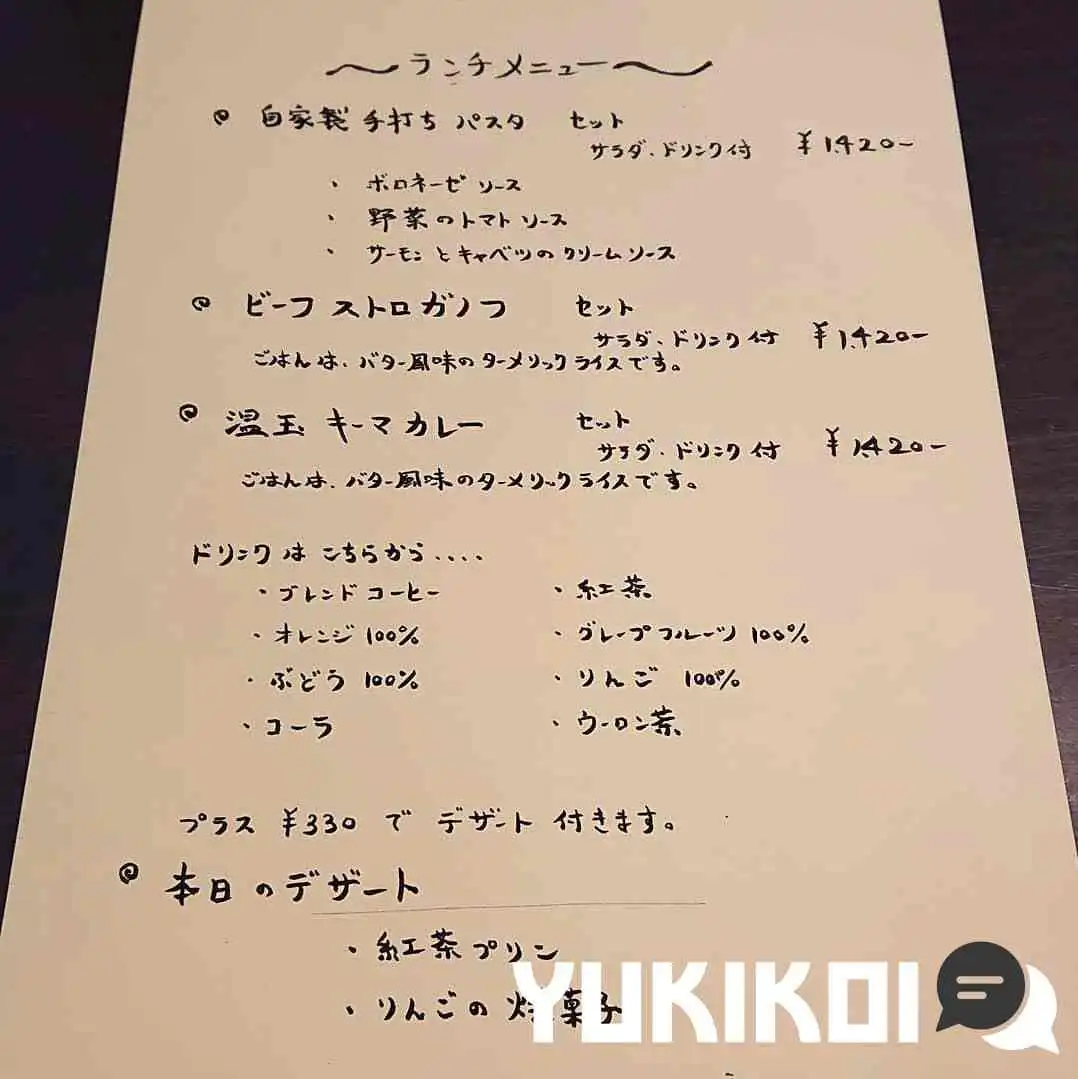 ~ランチメニュー~
自家製 手打ち パスタ セット
サラダ、ドリンク付 ¥1,420-
・ボロネーゼ ソース
・野菜のトマトソース
・サーモンとキャベツのクリームソース
ビーフストロガノフ セット
サラダ、ドリンク付 ¥1,420-
ごはんは、バター風味のターメリックライスです。
温玉 キーマカレー セット
サラダ、ドリンク付 ¥1,420-
ごはんは、バター風味のターメリックライスです。
ドリンクは こちらから....
・ブレンドコーヒー ・紅茶
・オレンジ 100% ・グレープフルーツ 100%
・ぶどう 100% ・りんご 100%
・コーラ ・ウーロン茶
プラス ¥330 で デザート 付きます。
本日のデザート
・紅茶プリン
・りんごの 焼菓子
YUKIKOI